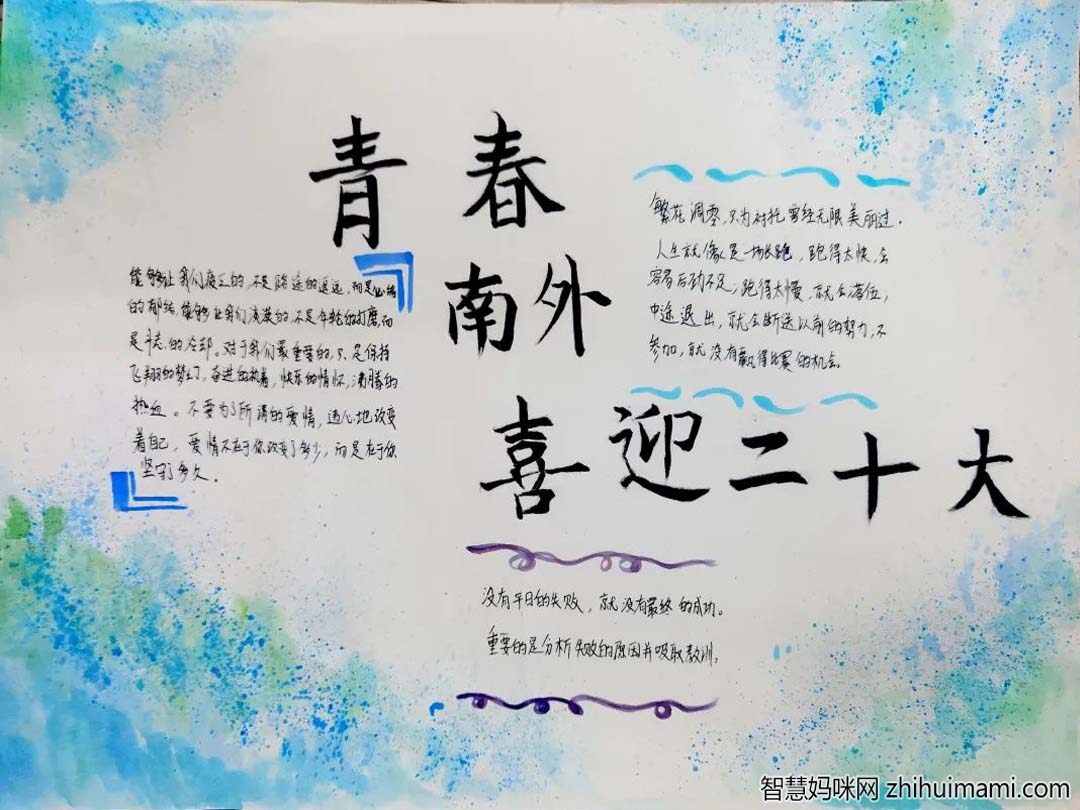 青春
南外
喜迎二十大
能够让我们疲乏的,不是路途的遥远,而是心绪
的郁结,能够让我们淡漠的,不是年轮的打磨,而
是斗志的冷却。对于我们最重要的,只是保持
飞翔的梦幻,奋进的执着,快乐的情怀,沸腾的
热血。不要为了所谓的爱情,违心地改变
着自己,爱情不在于你改变了多少,而是在于你
坚守了多久。
繁花凋零,只为衬托曾经无限美丽过.
人生就像是一场长跑,跑得太快,会
容易后劲不足;跑得太慢,就会落伍,
中途退出,就会断送以前的努力,不
参加,就没有赢得比赛的机会。
没有平日的失败,就没有最终的成功。
重要的是分析失败的原因并吸取教训。
智慧妈咪网 zhihuimami.com